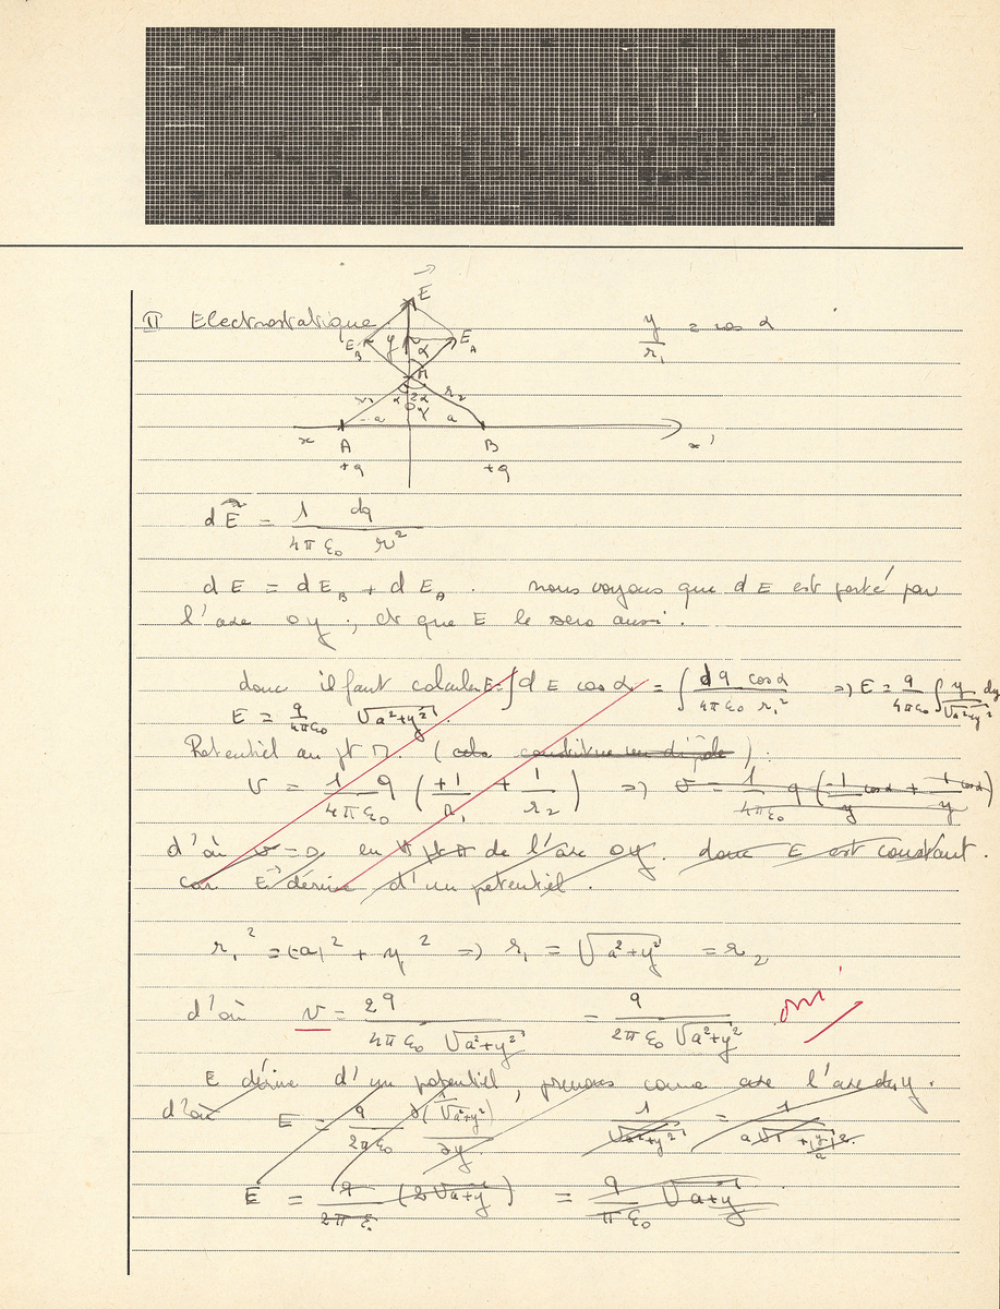 II Electrostatique
y/r₁ = cos α
E⃗
E_B y α E_A
M
r₁ α 2α r₂
-a O a
x A B x'
+q +q
dE⃗ = 1/(4πε₀) dq/r²
dE = dE_B + dE_A . nous voyons que dE est porté par
l'axe oy , et que E le sera aussi .
donc il faut calculer E = ∫ dE cos α = ∫ dq cos α/(4πε₀ r₁²) => E = q/(4πε₀) ∫ y/√(a²+y²) dy
E = q/(4πε₀) √(a²+y²) .
Potentiel au pt M . ( cela constitue un dipôle ) :
V = 1/(4πε₀) q ( +1/r₁ + 1/r₂ ) => v = 1/(4πε₀) q ( 1/y cos α + 1/y cos α )
d'où v = 0 en de l'axe oy . donc E est constant .
car E dérive d'un potentiel .
r₁² = (-a)² + y² => r₁ = √(a²+y²) = r₂
d'où v = 2q/(4πε₀ √(a²+y²)) = q/(2πε₀ √(a²+y²)) oui
E dérive d'un potentiel , prenons comme axe l'axe des y .
d'où E = q/(2πε₀) ∂(√(a²+y²))/∂y 1/√(a²+y²) = 1/(a√(1+(y/a)²))
E = q/(2πε₀) (2√(a+y)) = q/(πε₀) √(a+y)